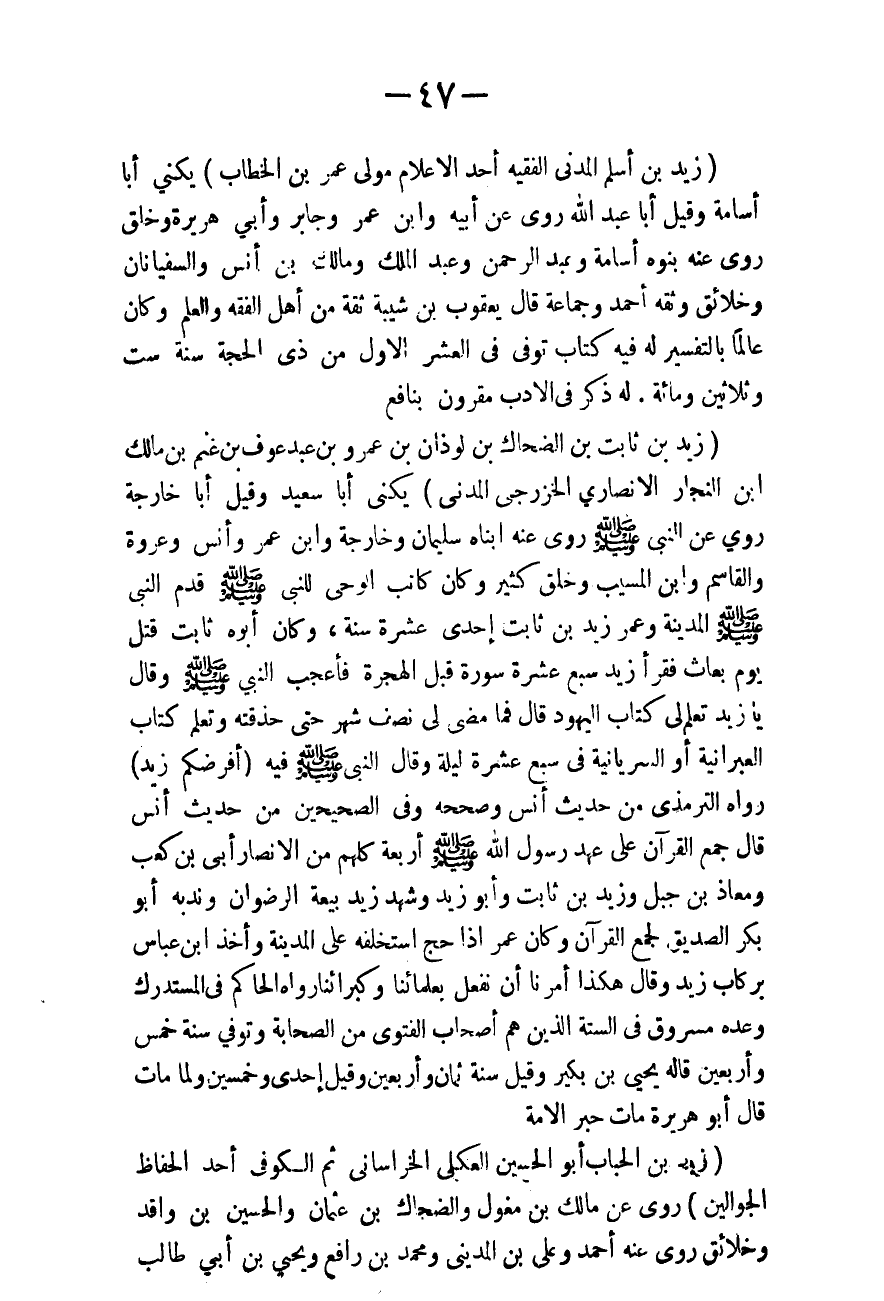 — ٤٧ —
( زيد بن أسلم المدنى الفقيه أحد الاعلام مولى عمر بن الخطاب ) يكني أبا
أسامة وقيل أبا عبد الله روى عن أبيه وابن عمر وجابر وأبي هريرة وخلق
روى عنه بنوه أسامة وعبد الرحمن وعبد الملك ومالك بن أنس والسفيانان
وخلائق وثقه أحمد وجماعة قال يعقوب بن شيبة ثقة من أهل الفقه والعلم وكان
عالماً بالتفسير له فيه كتاب توفى فى العشر الاول من ذى الحجة سنة ست
وثلاثين ومائة . له ذكر فى الادب مقرون بنافع
( زيد بن ثابت بن الضحاك بن لوذان بن عمرو بن عبد عوف بن غنم بن مالك
ابن النجار الانصاري الخزرجى المدنى ) يكنى أبا سعيد وقيل أبا خارجة
روي عن النبى ﷺ روى عنه ابناه سليمان وخارجة وابن عمر وأنس وعروة
والقاسم وابن المسيب وخلق كثير وكان كاتب الوحى للنبى ﷺ قدم النبى
ﷺ المدينة وعمر زيد بن ثابت إحدى عشرة سنة ، وكان أبوه ثابت قتل
يوم بعاث فقرأ زيد سبع عشرة سورة قبل الهجرة فأعجب النبي ﷺ وقال
يا زيد تعلم لى كتاب اليهود قال فما مضى لى نصف شهر حتى حذقته وتعلم كتاب
العبرانية أو السريانية فى سبع عشرة ليلة وقال النبى ﷺ فيه (أفرضكم زيد)
رواه الترمذى من حديث أنس وصححه وفى الصحيحين من حديث أنس
قال جمع القرآن على عهد رسول الله ﷺ أربعة كلهم من الانصار أبى بن كعب
ومعاذ بن جبل وزيد بن ثابت وأبو زيد وشهد زيد بيعة الرضوان وندبه أبو
بكر الصديق لجمع القرآن وكان عمر اذا حج استخلفه على المدينة وأخذ ابن عباس
بركاب زيد وقال هكذا أمرنا أن نفعل بعلمائنا وكبرائنا رواه الحاكم فى المستدرك
وعده مسروق فى الستة الذين هم أصحاب الفتوى من الصحابة وتوفي سنة خمس
وأربعين قاله يحيى بن بكير وقيل سنة ثمان وأربعين وقيل إحدى وخمسين ولما مات
قال أبو هريرة مات حبر الامة
( زيد بن الحباب أبو الحسين العكلى الخراسانى ثم الكوفى أحد الحفاظ
الجوالين ) روى عن مالك بن مغول والضحاك بن عثمان والحسين بن واقد
وخلائق روى عنه أحمد وعلى بن المدينى ومحمد بن رافع ويحيي بن أبي طالب